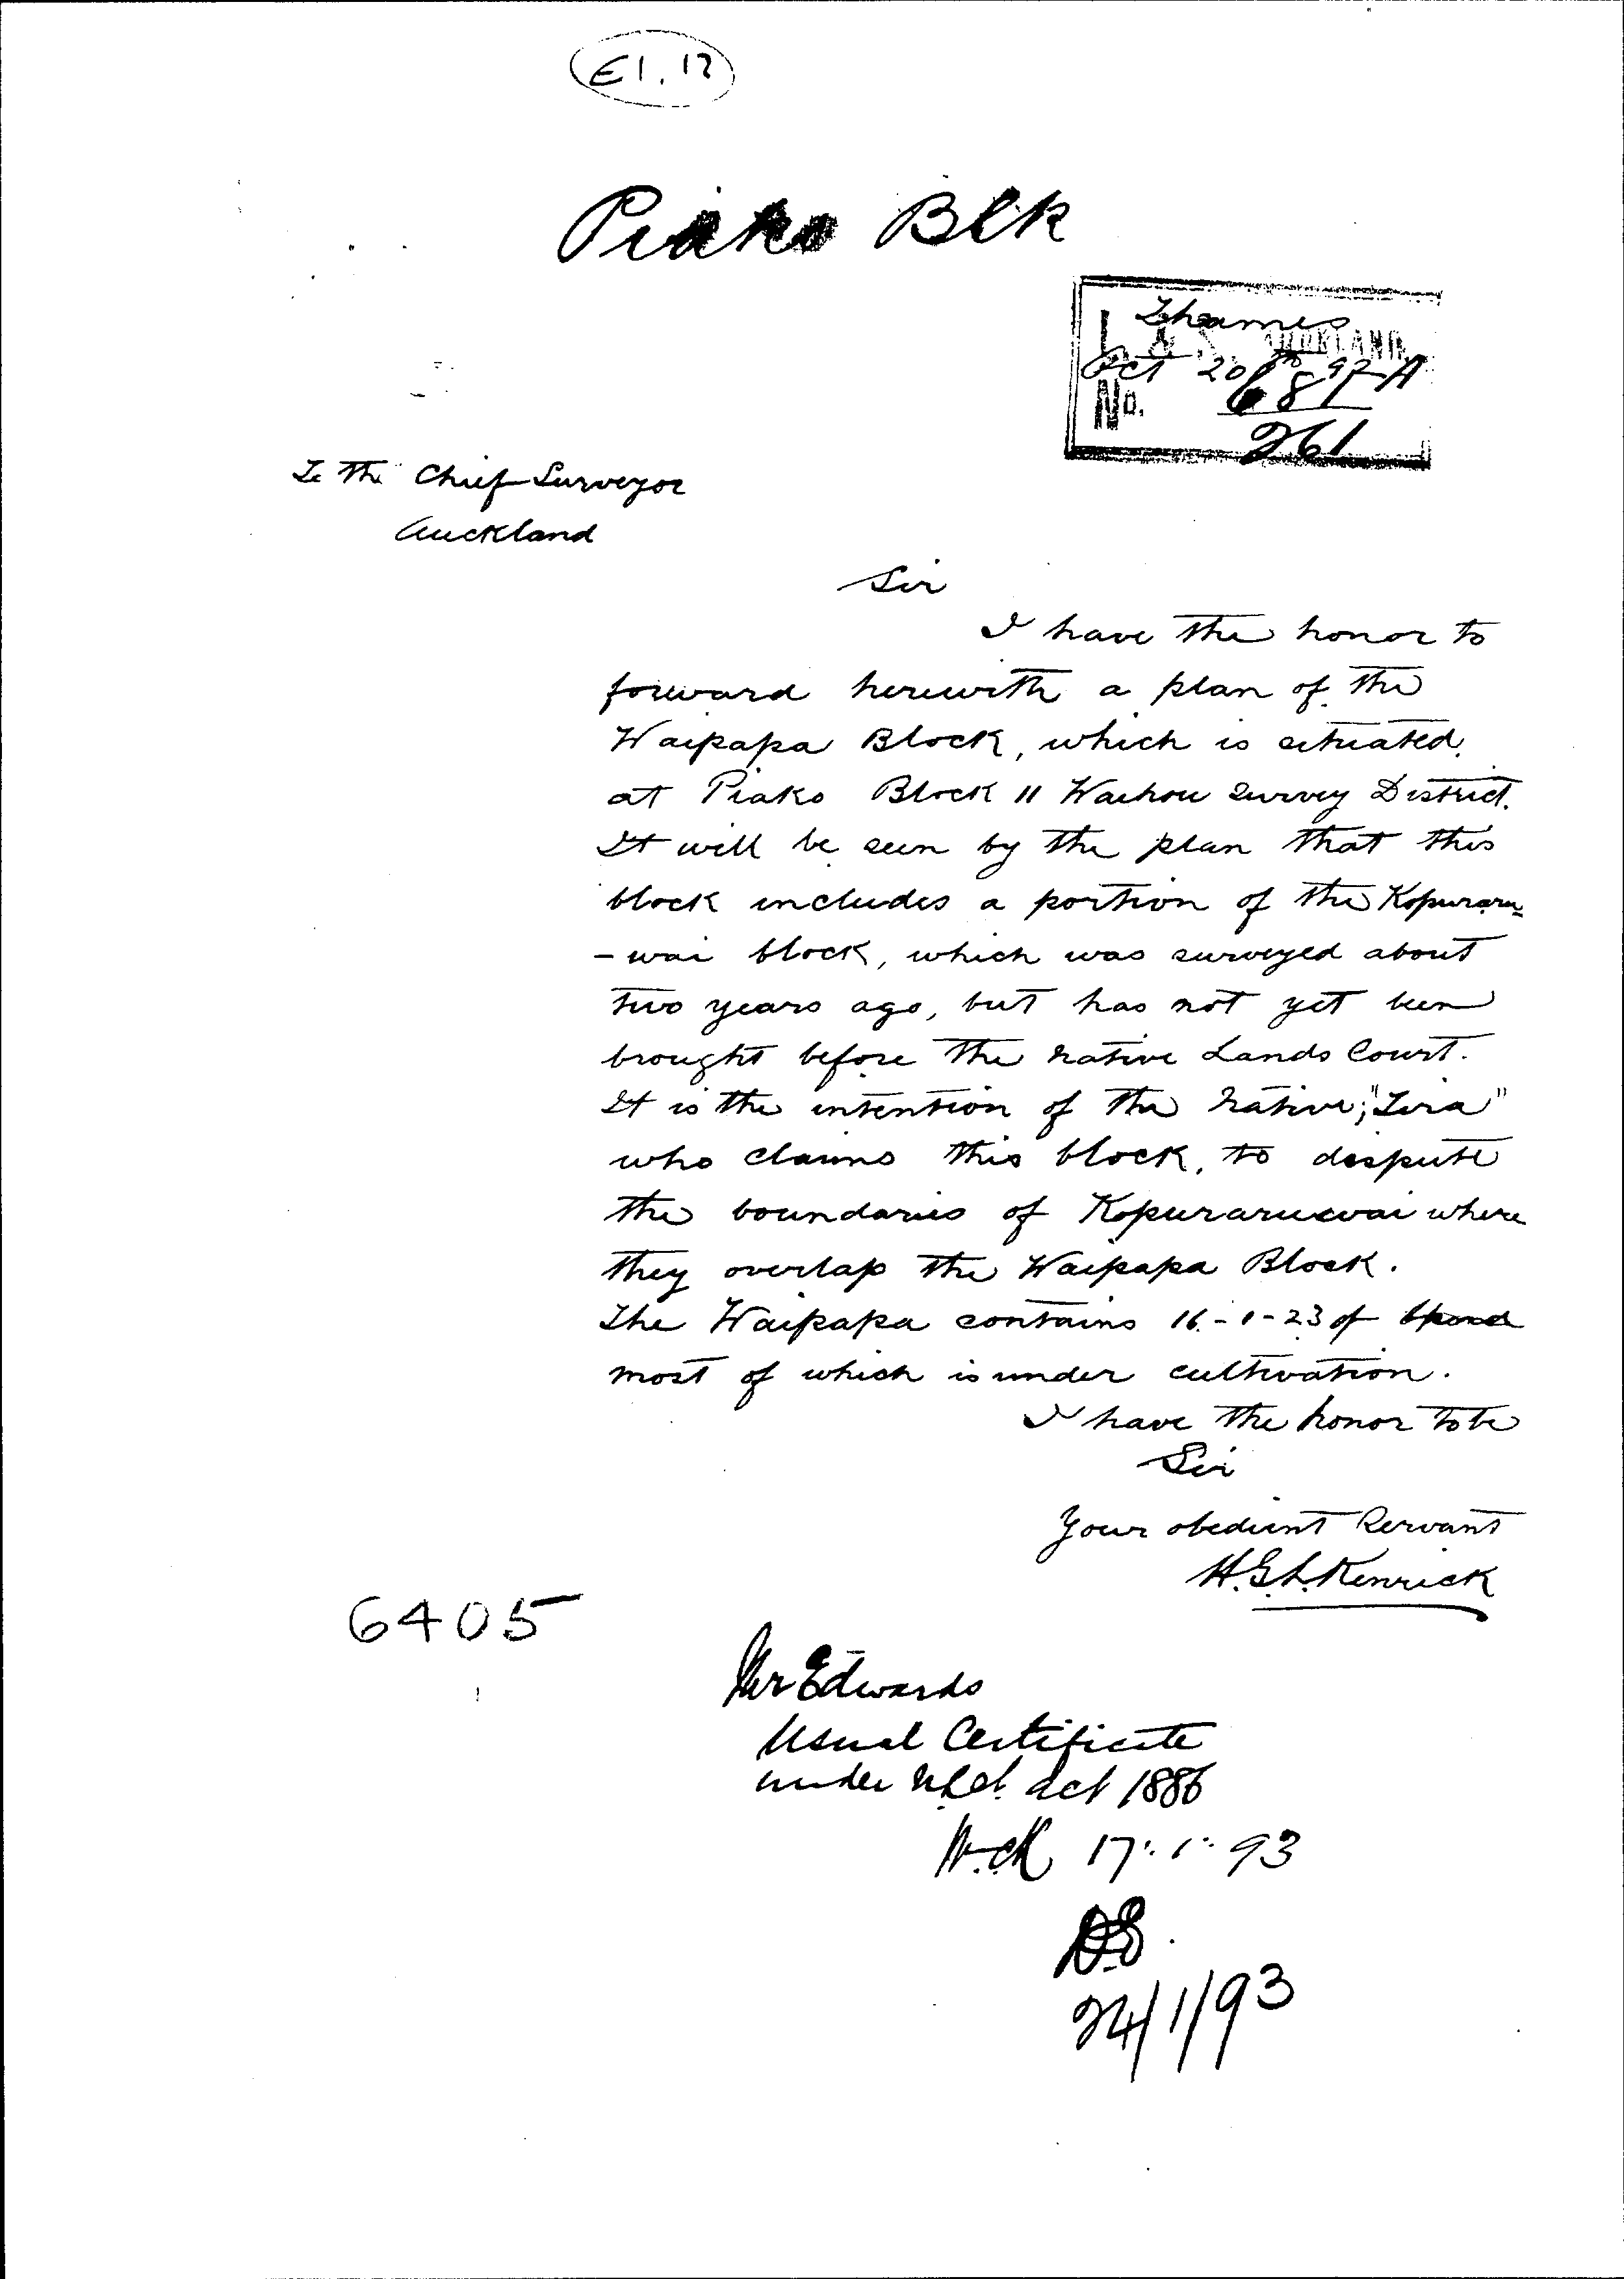 E1.12
Piako Blk
Thames
L & S. AUCKLAND
Oct 20th 92
No. 681-A
261
To The Chief Surveyor
Auckland
Sir
I have the honor to
forward herewith a plan of the
Waipapa Block, which is situated
at Piako Block 11 Waihou Survey District.
It will be seen by the plan that this
block includes a portion of the Kopuraru
-wai block, which was surveyed about
two years ago, but has not yet been
brought before the Native Lands Court.
It is the intention of the Native, "Tira"
who claims this block, to dispute
the boundaries of Kopuraruwai where
they overlap the Waipapa Block.
The Waipapa contains 16-1-23 of
most of which is under cultivation.
I have the honor to be
Sir
Your obedient Servant
H.G.L. Kenrick
6405
Mr Edwards
Usual Certificate
under N.L.Ct. Act 1886
17.1.93
24/1/93